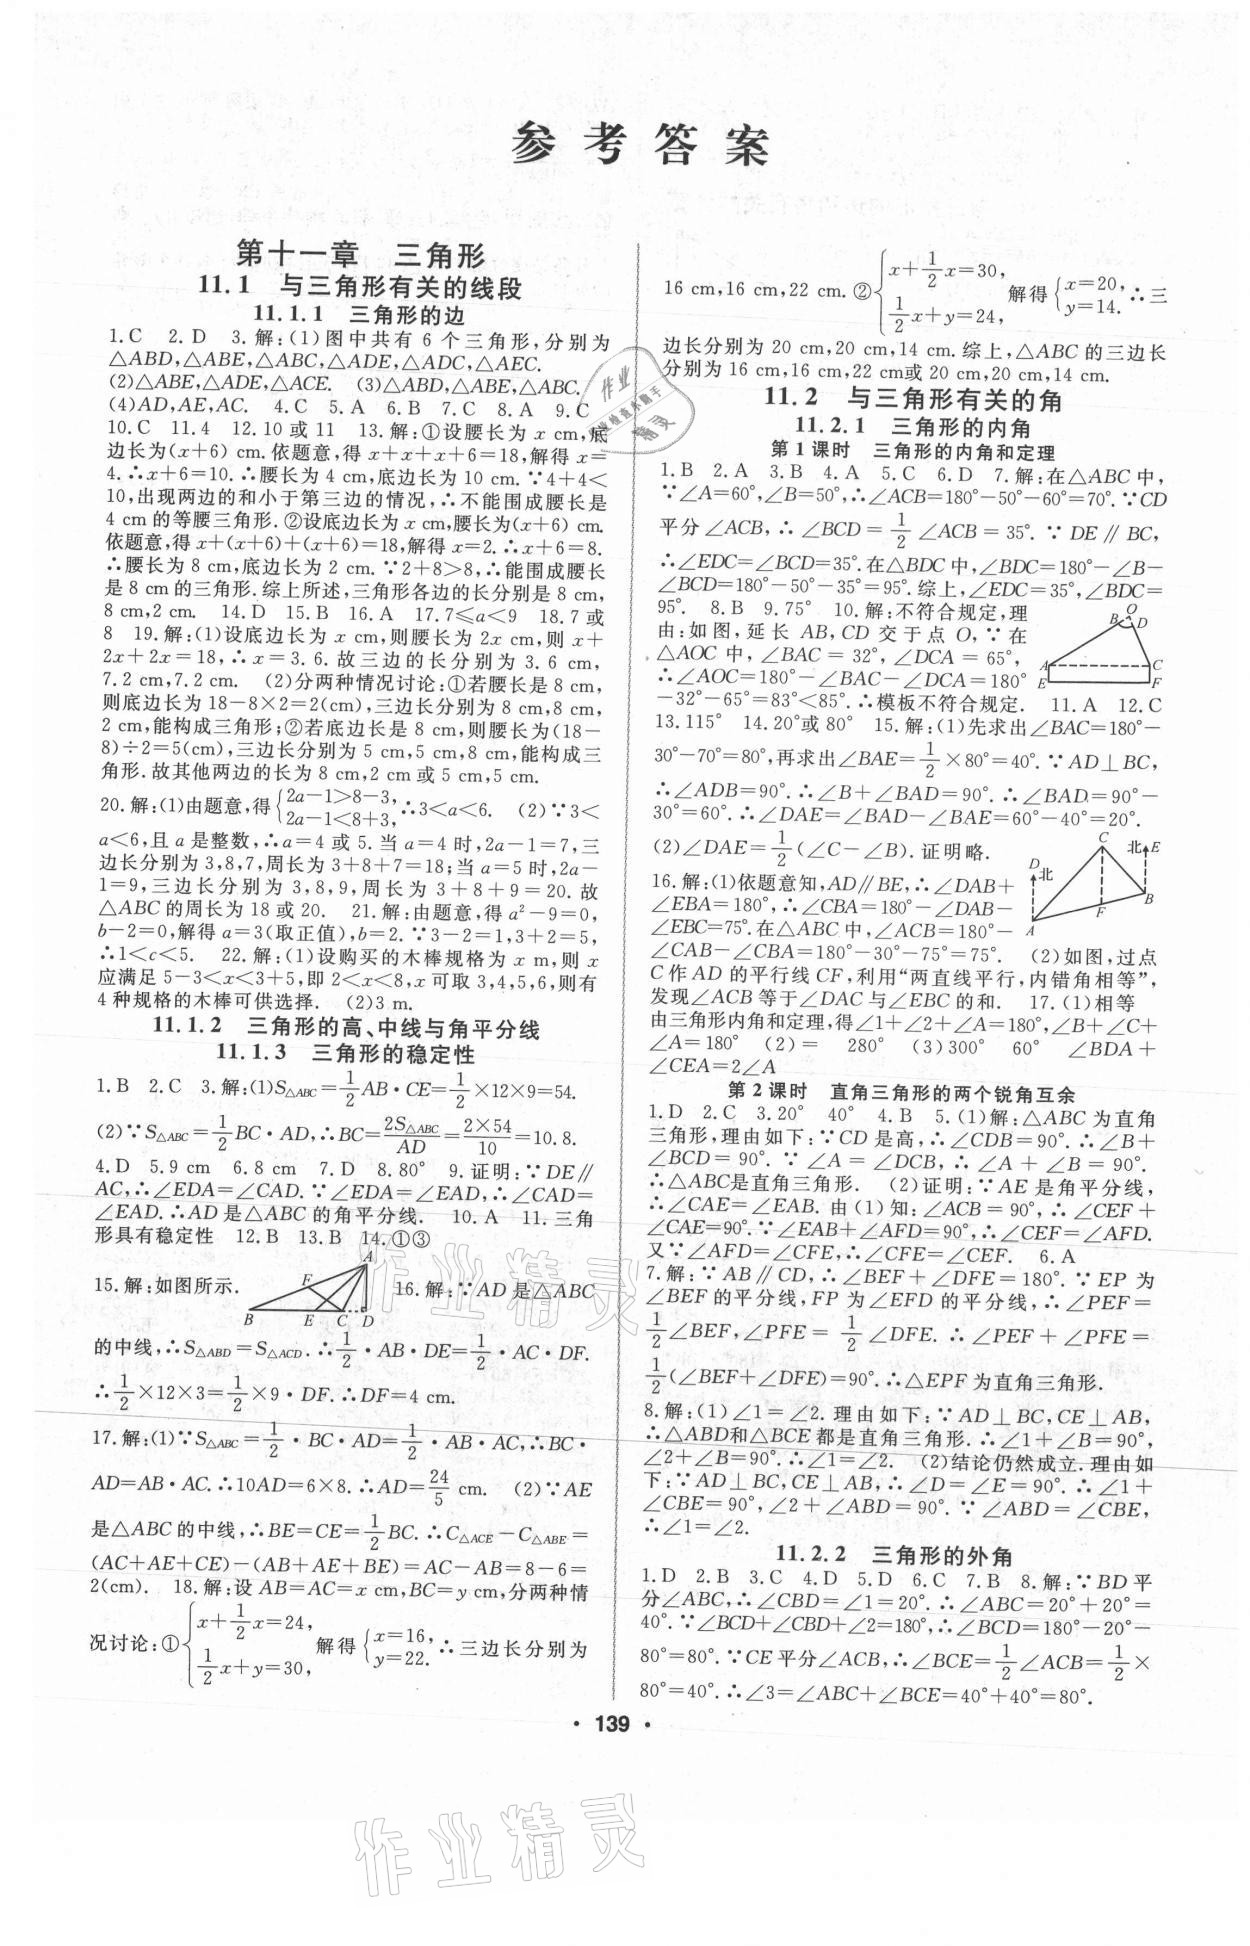 参考答案
第十一章 三角形
11.1 与三角形有关的线段
11.1.1 三角形的边
1.C 2.D 3.解:(1)图中共有 6 个三角形,分别为
△ABD,△ABE,△ABC,△ADE,△ADC,△AEC.
(2)△ABE,△ADE,△ACE. (3)△ABD,△ABE,△ABC.
(4)AD,AE,AC. 4.C 5.A 6.B 7.C 8.A 9.C
10.C 11.4 12.10 或 11 13.解:①设腰长为 x cm,底
边长为(x+6) cm.依题意,得 x+x+x+6=18,解得 x=
4.∴x+6=10.∴腰长为 4 cm,底边长为 10 cm.∵4+4<
10,出现两边的和小于第三边的情况,∴不能围成腰长是
4 cm的等腰三角形.②设底边长为 x cm,腰长为(x+6) cm.
依题意,得 x+(x+6)+(x+6)=18,解得 x=2.∴x+6=8.
∴腰长为 8 cm,底边长为 2 cm.∵2+8>8,∴能围成腰长
是 8 cm的三角形.综上所述,三角形各边的长分别是 8 cm,
8 cm,2 cm. 14.D 15.B 16.A 17.7≤a<9 18.7 或
8 19.解:(1)设底边长为 x cm,则腰长为 2x cm,则 x+
2x+2x=18,∴x=3.6.故三边的长分别为 3.6 cm,
7.2 cm,7.2 cm. (2)分两种情况讨论:①若腰长是 8 cm,
则底边长为 18-8×2=2(cm),三边长分别为 8 cm,8 cm,
2 cm,能构成三角形;②若底边长是 8 cm,则腰长为(18-
8)÷2=5(cm),三边长分别为 5 cm,5 cm,8 cm,能构成三
角形.故其他两边的长为 8 cm,2 cm 或 5 cm,5 cm.
20.解:(1)由题意,得{2a-1>8-3, 2a-1<8+3,∴3<a<6. (2)∵3<
a<6,且 a 是整数,∴a=4 或 5.当 a=4 时,2a-1=7,三
边长分别为 3,8,7,周长为 3+8+7=18;当 a=5 时,2a-
1=9,三边长分别为 3,8,9,周长为 3+8+9=20.故
△ABC 的周长为 18 或 20. 21.解:由题意,得 a²-9=0,
b-2=0,解得 a=3(取正值),b=2.∵3-2=1,3+2=5,
∴1<c<5. 22.解:(1)设购买的木棒规格为 x m,则 x
应满足 5-3<x<3+5,即 2<x<8,x 可取 3,4,5,6,则有
4 种规格的木棒可供选择. (2)3 m.
11.1.2 三角形的高、中线与角平分线
11.1.3 三角形的稳定性
1.B 2.C 3.解:(1)S△ABC=1/2AB·CE=1/2×12×9=54.
(2)∵S△ABC=1/2BC·AD,∴BC=2S△ABC/AD=2×54/10=10.8.
4.D 5.9 cm 6.8 cm 7.D 8.80° 9.证明:∵DE∥
AC,∴∠EDA=∠CAD.∵∠EDA=∠EAD,∴∠CAD=
∠EAD.∴AD 是△ABC 的角平分线. 10.A 11.三角
形具有稳定性 12.B 13.B 14.①③
15.解:如图所示. A F B E C D 16.解:∵AD 是△ABC
的中线,∴S△ABD=S△ACD.∴1/2·AB·DE=1/2·AC·DF.
∴1/2×12×3=1/2×9·DF.∴DF=4 cm.
17.解:(1)∵S△ABC=1/2·BC·AD=1/2·AB·AC,∴BC·
AD=AB·AC.∴10AD=6×8.∴AD=24/5 cm. (2)∵AE
是△ABC 的中线,∴BE=CE=1/2BC.∴C△ACE-C△ABE=
(AC+AE+CE)-(AB+AE+BE)=AC-AB=8-6=
2(cm). 18.解:设 AB=AC=x cm,BC=y cm,分两种情
况讨论:①{x+1/2x=24, 1/2x+y=30,解得{x=16, y=22.∴三边长分别为
16 cm,16 cm,22 cm.②{x+1/2x=30, 1/2x+y=24,解得{x=20, y=14.∴三
边长分别为 20 cm,20 cm,14 cm.综上,△ABC 的三边长
分别为 16 cm,16 cm,22 cm或 20 cm,20 cm,14 cm.
11.2 与三角形有关的角
11.2.1 三角形的内角
第 1 课时 三角形的内角和定理
1.B 2.A 3.B 4.A 5.C 6.D 7.解:在△ABC 中,
∵∠A=60°,∠B=50°,∴∠ACB=180°-50°-60°=70°.∵CD
平分∠ACB,∴∠BCD=1/2∠ACB=35°.∵DE∥BC,
∴∠EDC=∠BCD=35°.在△BDC 中,∠BDC=180°-∠B-
∠BCD=180°-50°-35°=95°.综上,∠EDC=35°,∠BDC=
95°. 8.B 9.75° 10.解:不符合规定,理
由:如图,延长 AB,CD 交于点 O,∵在
△AOC 中,∠BAC=32°,∠DCA=65°,
∴∠AOC=180°-∠BAC-∠DCA=180°
-32°-65°=83°<85°.∴模板不符合规定. 11.A 12.C
O B D A C E F
13.115° 14.20°或 80° 15.解:(1)先求出∠BAC=180°-
30°-70°=80°,再求出∠BAE=1/2×80°=40°.∵AD⊥BC,
∴∠ADB=90°.∴∠B+∠BAD=90°.∴∠BAD=90°-
30°=60°.∴∠DAE=∠BAD-∠BAE=60°-40°=20°.
(2)∠DAE=1/2(∠C-∠B).证明略.
16.解:(1)依题意知,AD∥BE,∴∠DAB+
∠EBA=180°,∴∠CBA=180°-∠DAB-
∠EBC=75°.在△ABC 中,∠ACB=180°-
C 北 E D 北 B F A
∠CAB-∠CBA=180°-30°-75°=75°. (2)如图,过点
C 作 AD 的平行线 CF,利用“两直线平行,内错角相等”,
发现∠ACB 等于∠DAC 与∠EBC 的和. 17.(1)相等
由三角形内角和定理,得∠1+∠2+∠A=180°,∠B+∠C+
∠A=180° (2)= 280° (3)300° 60° ∠BDA+
∠CEA=2∠A
第 2 课时 直角三角形的两个锐角互余
1.D 2.C 3.20° 40° 4.B 5.(1)解:△ABC 为直角
三角形,理由如下:∵CD 是高,∴∠CDB=90°.∴∠B+
∠BCD=90°.∵∠A=∠DCB,∴∠A+∠B=90°.
∴△ABC是直角三角形. (2)证明:∵AE 是角平分线,
∴∠CAE=∠EAB.由(1)知:∠ACB=90°,∴∠CEF+
∠CAE=90°.∵∠EAB+∠AFD=90°,∴∠CEF=∠AFD.
又∵∠AFD=∠CFE,∴∠CFE=∠CEF. 6.A
7.解:∵AB∥CD,∴∠BEF+∠DFE=180°.∵EP 为
∠BEF 的平分线,FP 为∠EFD 的平分线,∴∠PEF=
1/2∠BEF,∠PFE=1/2∠DFE.∴∠PEF+∠PFE=
1/2(∠BEF+∠DFE)=90°.∴△EPF 为直角三角形.
8.解:(1)∠1=∠2.理由如下:∵AD⊥BC,CE⊥AB,
∴△ABD和△BCE 都是直角三角形.∴∠1+∠B=90°,
∠2+∠B=90°.∴∠1=∠2. (2)结论仍然成立.理由如
下:∵AD⊥BC,CE⊥AB,∴∠D=∠E=90°.∴∠1+
∠CBE=90°,∠2+∠ABD=90°.∵∠ABD=∠CBE,
∴∠1=∠2.
11.2.2 三角形的外角
1.D 2.B 3.C 4.D 5.D 6.C 7.B 8.解:∵BD 平
分∠ABC,∴∠CBD=∠1=20°.∴∠ABC=20°+20°=
40°.∵∠BCD+∠CBD+∠2=180°,∴∠BCD=180°-20°-
80°=80°.∵CE 平分∠ACB,∴∠BCE=1/2∠ACB=1/2×
80°=40°.∴∠3=∠ABC+∠BCE=40°+40°=80°.
· 139 ·
作业精灵
作业精灵